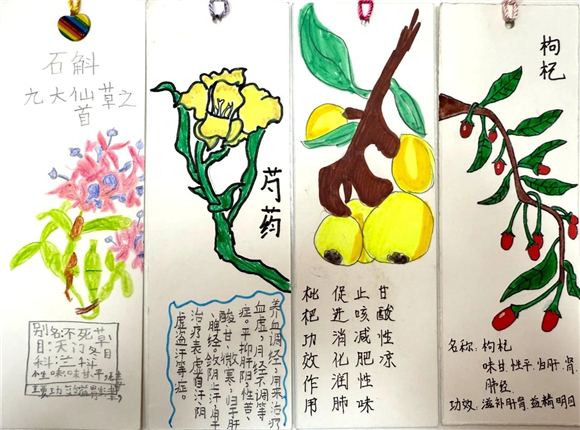 石斛
九大仙草之
首
别名:不死草
目:天门冬目
科:兰科
性味:味甘.平
芍药
养血调经,用来治疗
血虚,月经不调等
症。平抑肝阳,性苦、
酸、甘,微寒,归于肝、
脾经。敛阴止汗,用于
治疗表虚自汗、阴
虚盗汗等症。
枇杷功效作用
促进消化润肺
止咳减肥性味
甘酸性凉
枸
杞
名称:枸杞
味甘,性平,归肝.肾.
肺经
功效:滋补肝肾.益精明目